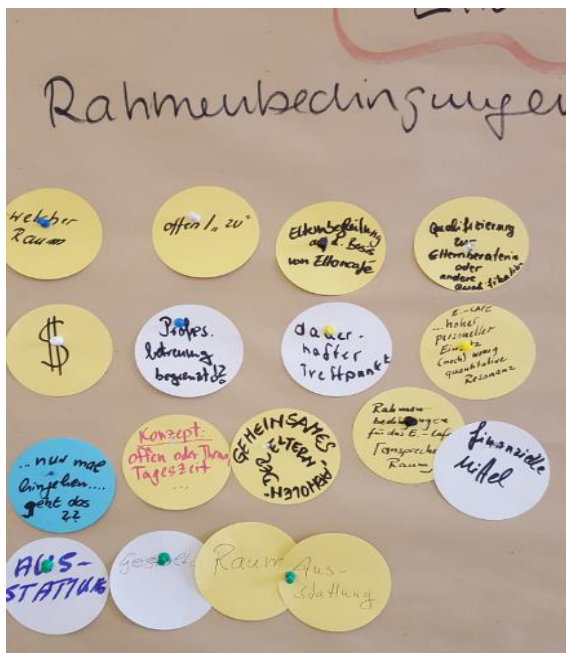 Rahmenbedingungen
welcher
Raum
offen / "zu"
Elternbegleitung
auf d. Basis
von Elterncafé
Qualifizierung
zur
Elternberaterin
oder
andere
Qualifikation
$
Profes.
betreuung
begrenzt!?
dauer-
hafter
Treffpunkt
E.-Café
...hoher
personeller
Einsatz
(noch) wenig
quantitative
Resonanz
...nur mal
hingehen....
geht das
??
Konzept:
offen oder Thema,
Tageszeit
...
GEMEINSAMES
"ABHOLEN"
DER ELTERN
Rahmen-
bedingungen
für das E.-Café
Raum
finanzielle
Mittel
AUS-
STATTUNG
Raum
Aus-
stattung